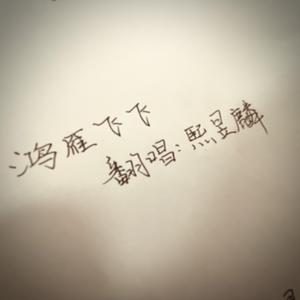 鸿雁飞飞
翻唱:熙昱麟